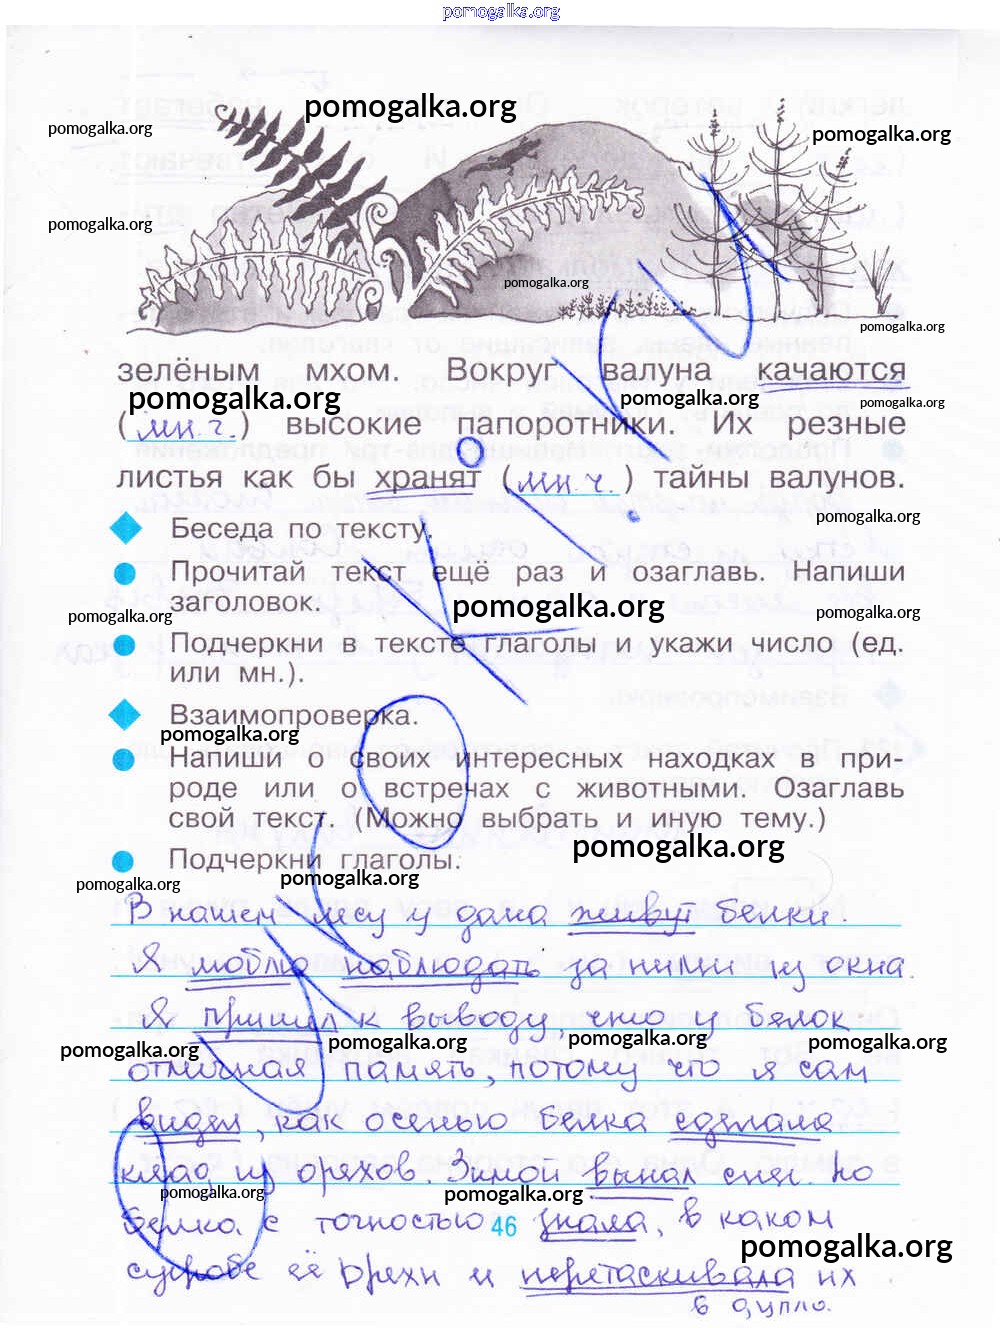 pomogalka.org
pomogalka.org
pomogalka.org
pomogalka.org
pomogalka.org
pomogalka.org
pomogalka.org
зелёным мхом. Вокруг валуна качаются
pomogalka.org
pomogalka.org
pomogalka.org
(мн.ч.) высокие папоротники. Их резные
листья как бы хранят (мн.ч.) тайны валунов.
pomogalka.org
Беседа по тексту.
Прочитай текст ещё раз и озаглавь. Напиши
заголовок.
pomogalka.org
pomogalka.org
pomogalka.org
Подчеркни в тексте глаголы и укажи число (ед.
или мн.).
Взаимопроверка.
pomogalka.org
Напиши о своих интересных находках в при-
роде или о встречах с животными. Озаглавь
свой текст. (Можно выбрать и иную тему.)
pomogalka.org
Подчеркни глаголы.
pomogalka.org
pomogalka.org
В нашем лесу у дома живут белки.
Я люблю наблюдать за ними из окна.
Я пришёл к выводу, что у белок
pomogalka.org
pomogalka.org
pomogalka.org
pomogalka.org
отличная память, потому что я сам
видел, как осенью белка сделала
клад из орехов. Зимой выпал снег. Но
pomogalka.org
pomogalka.org
белка с точностью знала, в каком
46
pomogalka.org
сугробе её орехи и перетаскивала их
в дупло.